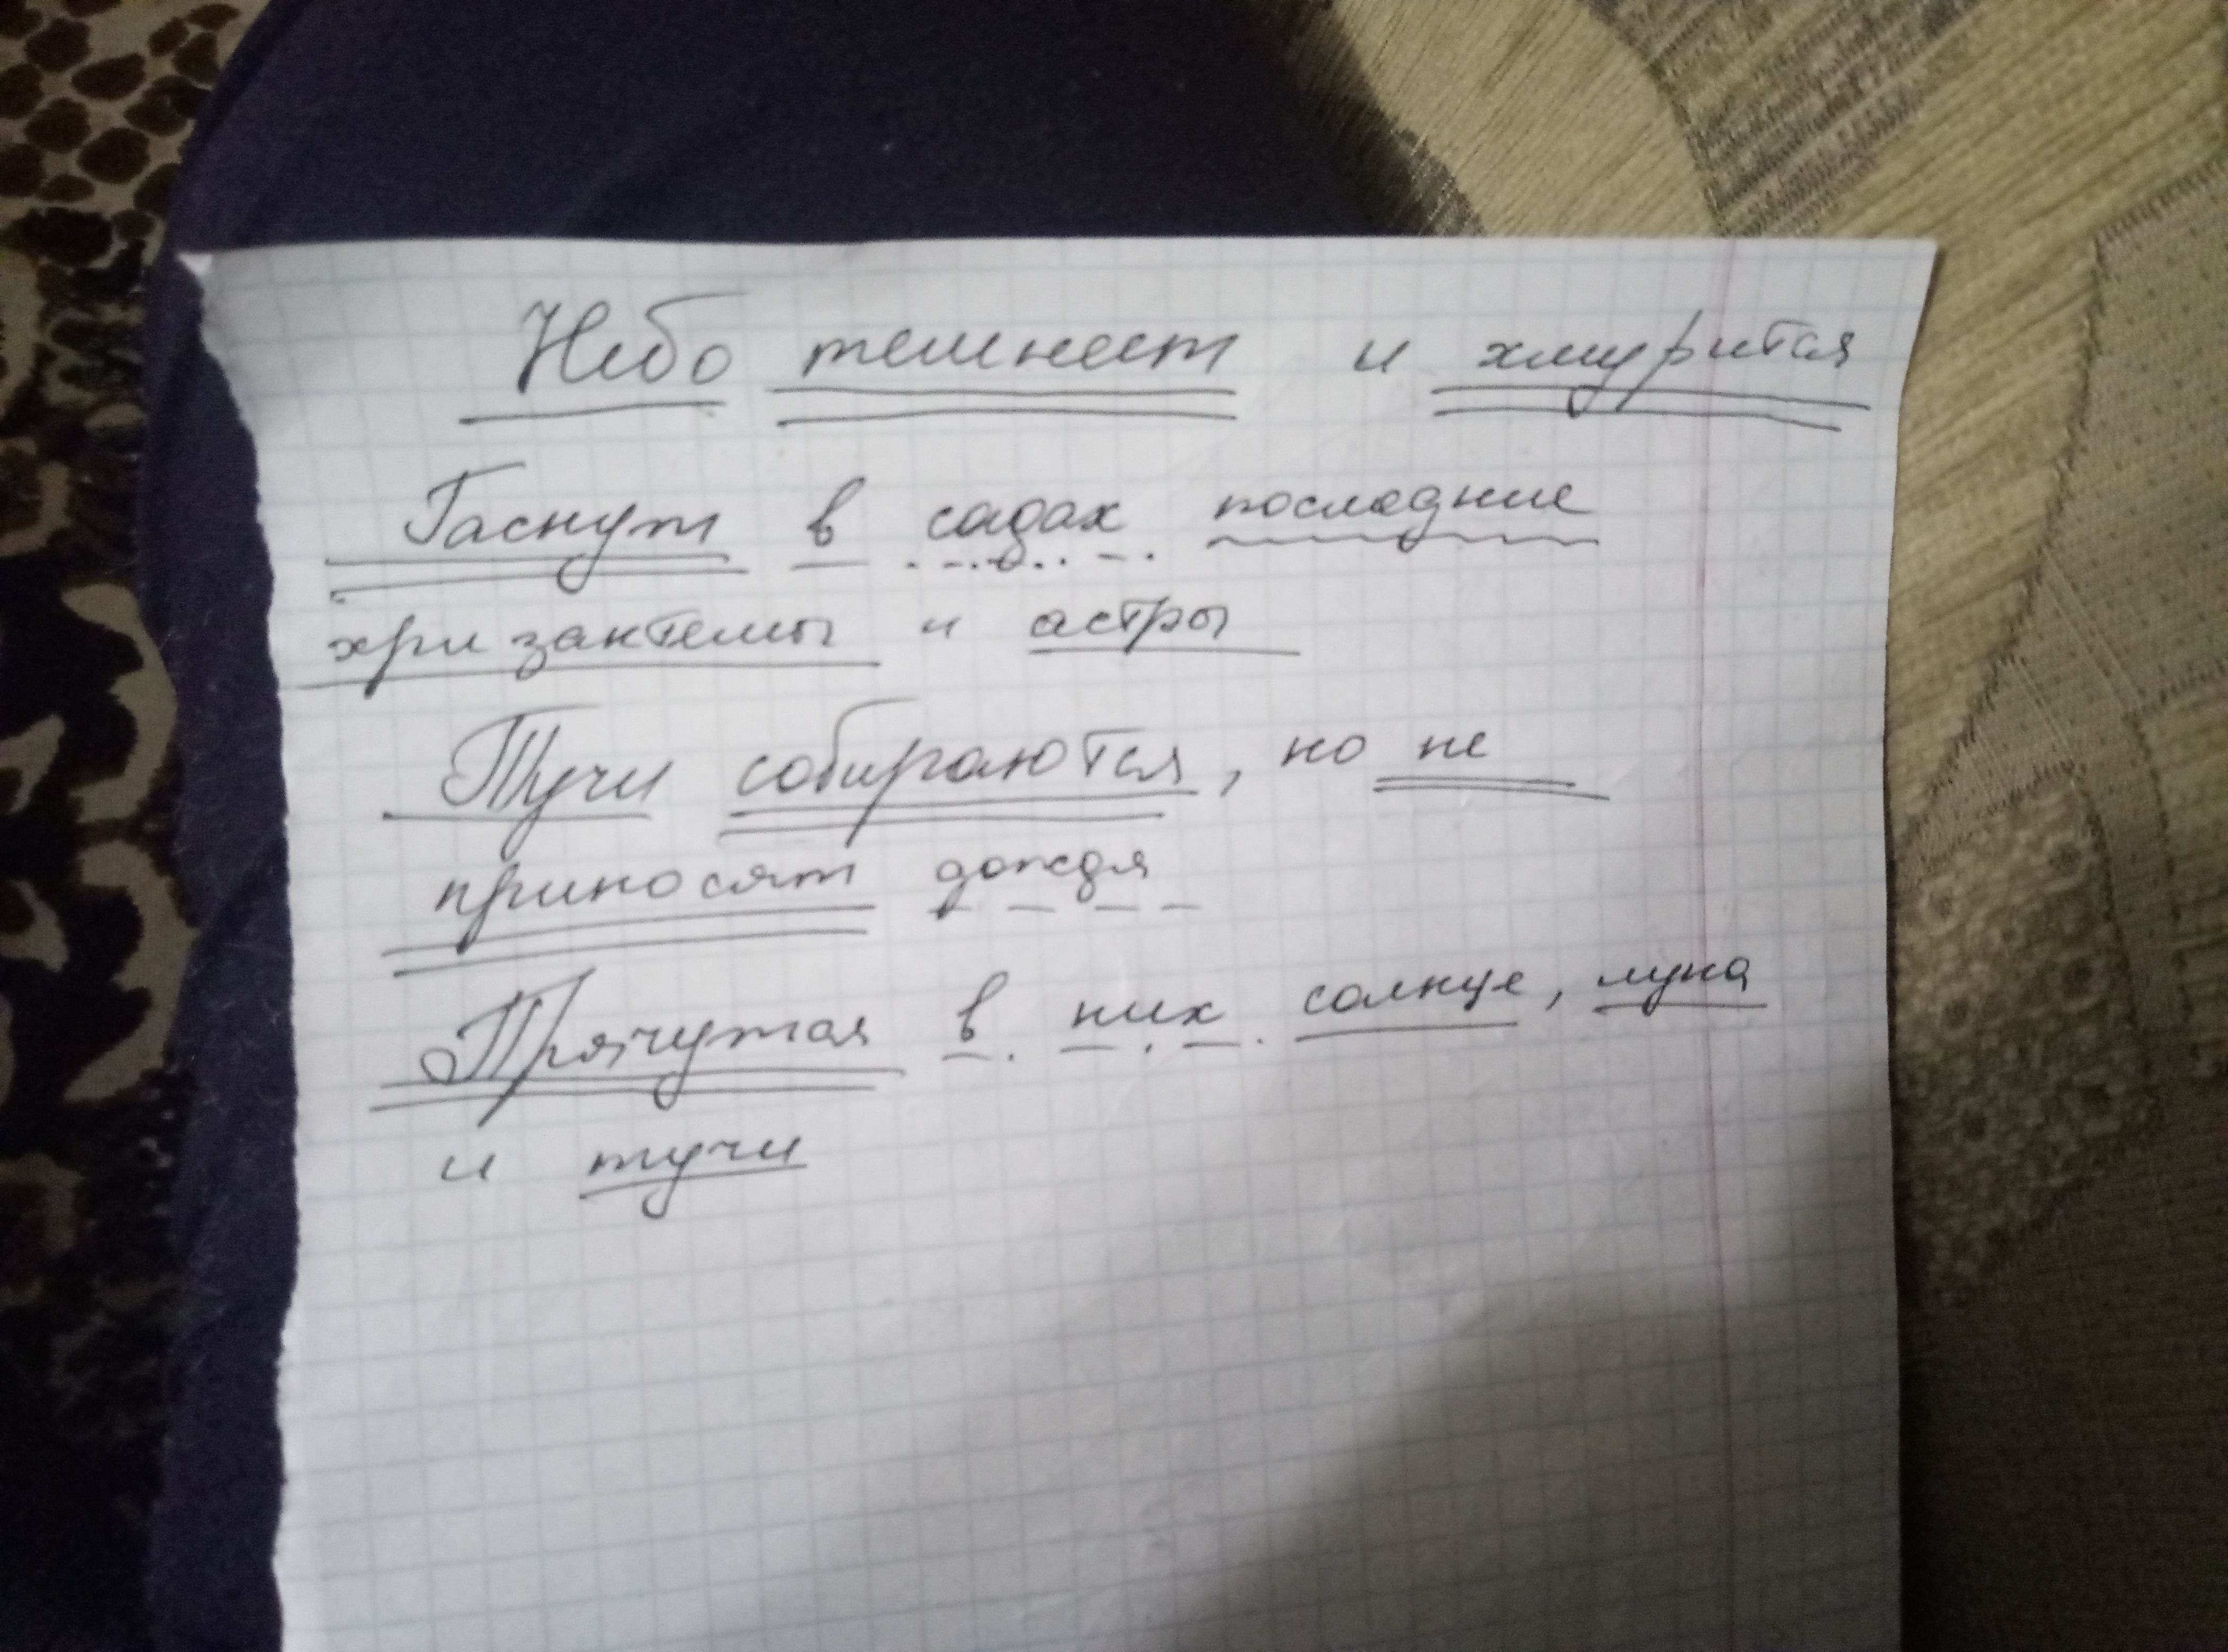 Небо темнеет и хмурится
Гаснут в садах последние
хризантемы и астры
Тучи собираются, но не
приносят дождя
Прячутся в них солнце, луна
и тучи